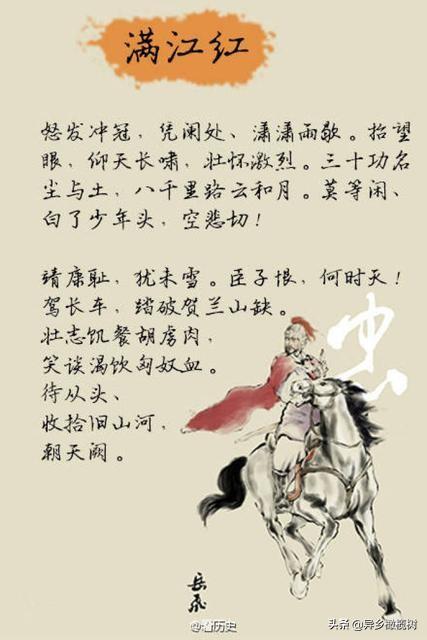 满江红
怒发冲冠，凭阑处、潇潇雨歇。抬望
眼，仰天长啸，壮怀激烈。三十功名
尘与土，八千里路云和月。莫等闲、
白了少年头，空悲切！
靖康耻，犹未雪。臣子恨，何时灭！
驾长车，踏破贺兰山缺。
壮志饥餐胡虏肉，
笑谈渴饮匈奴血。
待从头、
收拾旧山河，
朝天阙。
忠
岳飞
历史
头条 @异乡橄榄树